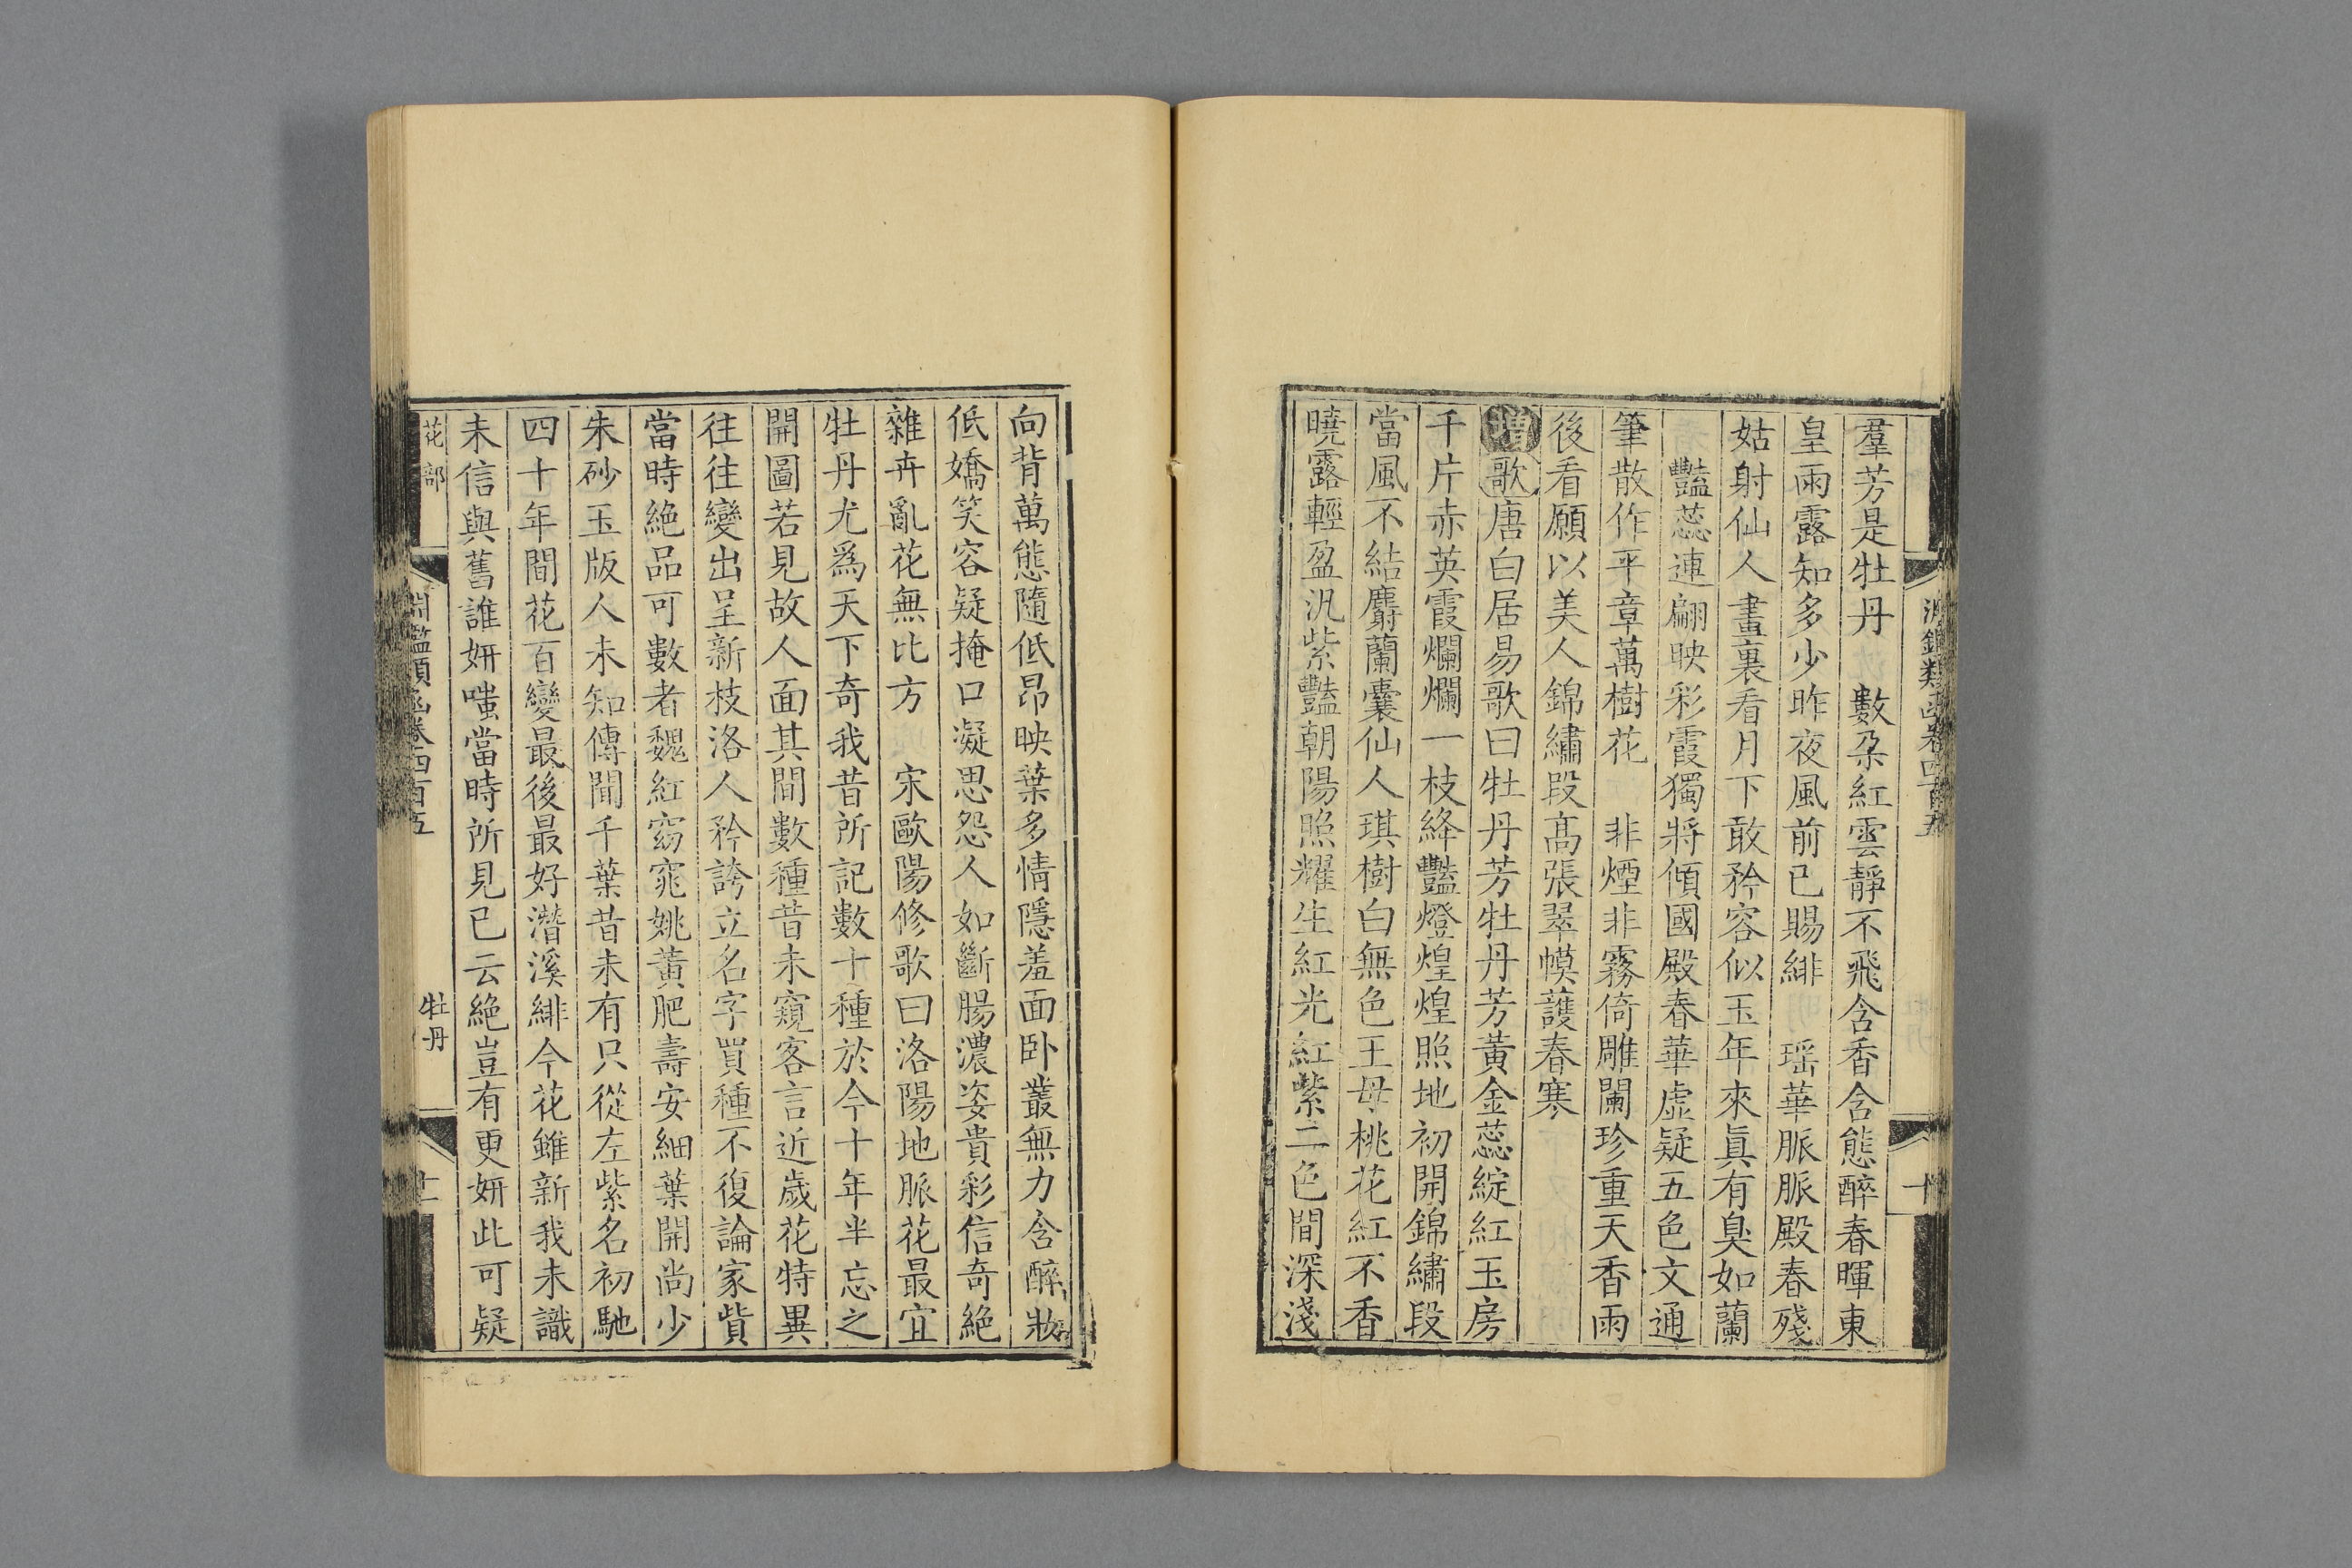 羣芳是牡丹　數朶紅雲靜不飛含香含態醉春暉東
皇雨露知多少昨夜風前已賜緋　瑶華脈脈殿春殘
姑射仙人畫裏看月下敢矜容似玉年來眞有臭如蘭
豔蕊連翩映彩霞獨將傾國殿春華虛疑五色文通
筆散作平章萬樹花　非煙非霧倚雕闌珍重天香雨
後看願以美人錦繡段高張翠幙護春寒
增歌唐白居易歌曰牡丹芳牡丹芳黃金蕊綻紅玉房
千片赤英霞爛爛一枝絳豔燈煌煌照地初開錦繡段
當風不結麝蘭囊仙人琪樹白無色王母桃花紅不香
曉露輕盈汎紫豔朝陽照耀生紅光紅紫二色間深淺
向背萬態隨低昂映葉多情隱羞面卧叢無力含醉妝
低嬌笑容疑掩口凝思怨人如斷腸濃姿貴彩信奇絶
雜卉亂花無比方　宋歐陽修歌曰洛陽地脈花最宜
牡丹尤爲天下奇我昔所記數十種於今十年半忘之
開圖若見故人面其間數種昔未窺客言近歲花特異
往往變出呈新枝洛人矜誇立名字買種不復論家貲
當時絶品可數者魏紅窈窕姚黃肥壽安細葉開尚少
朱砂玉版人未知傳聞千葉昔未有只從左紫名初馳
四十年間花百變最後最好潛溪緋今花雖新我未識
未信與舊誰妍嗤當時所見已云絶豈有更妍此可疑
花部　淵鑑類函卷四百五　牡丹